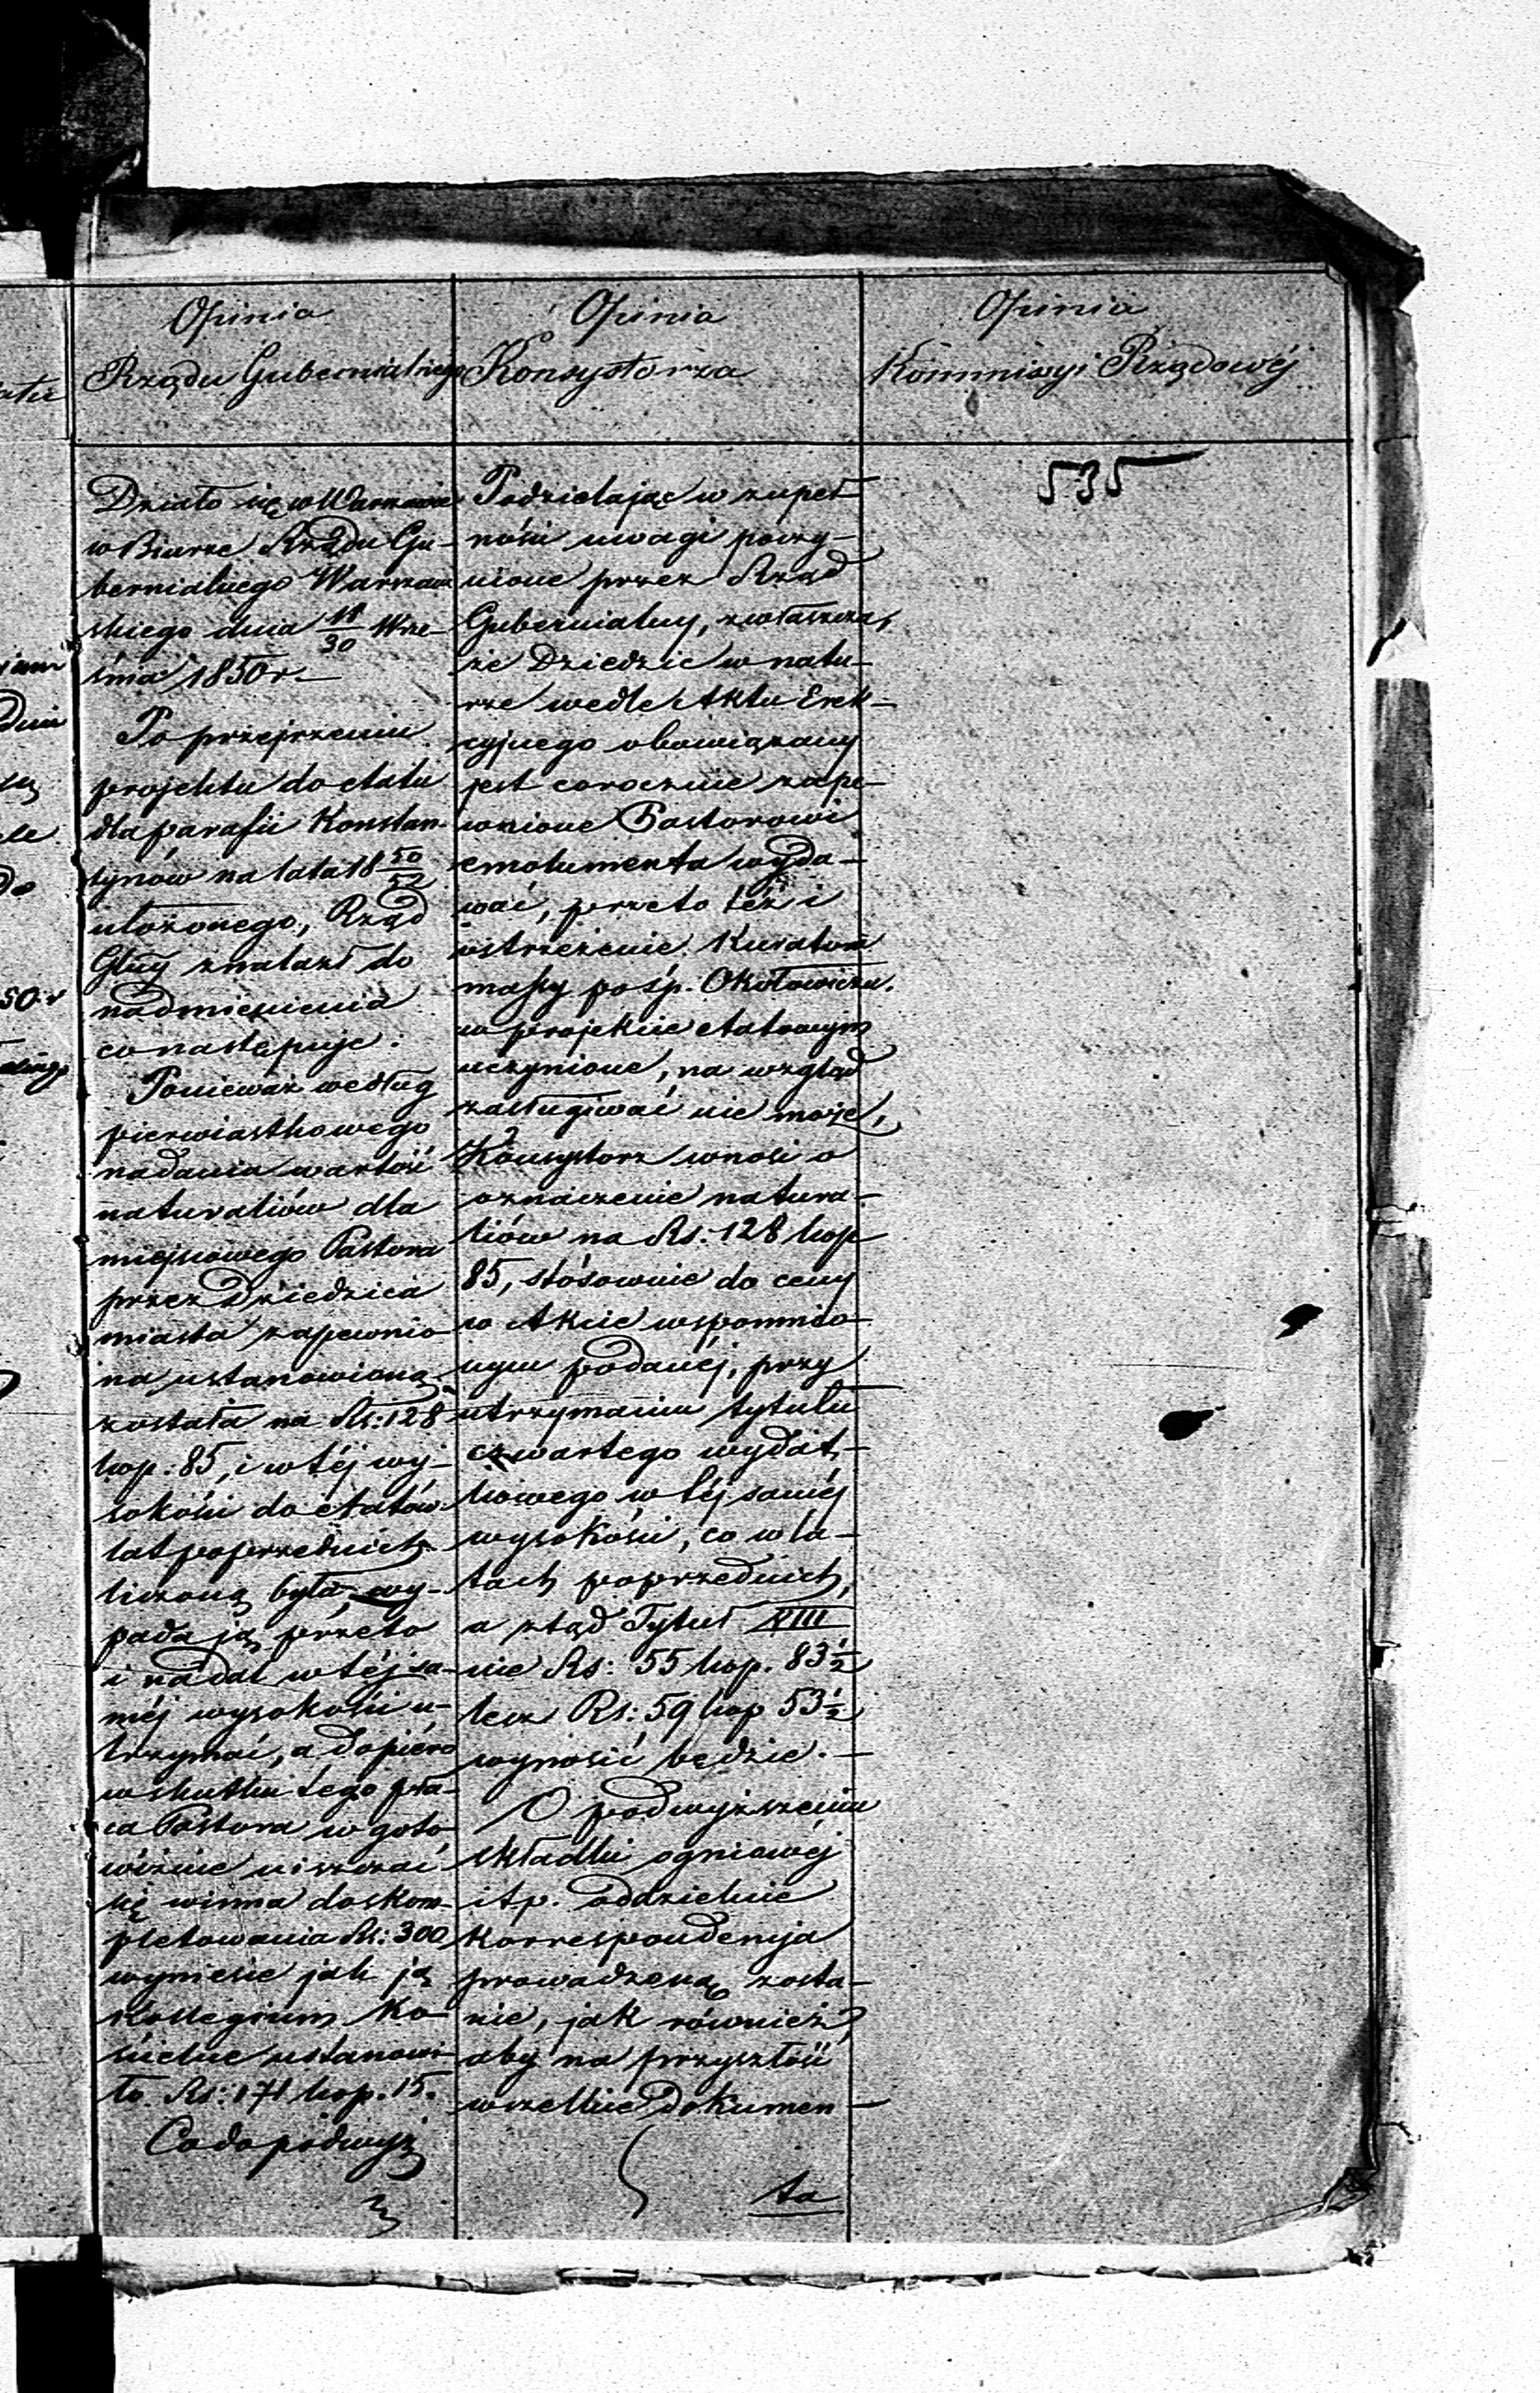 Opinia
Rządu Gubernialnego
Działo się w Warszawie
w Biurze Rządu Gu-
bernialnego Warszaw
skiego dnia 18/30 Wrze-
śnia 1850 r.
Po przejrzeniu
projektu do etatu
dla parafii Konstan-
tynów na lata 18 50/52
ułożonego, Rząd
Glny znalazł do
nadmienienia
co następuje:
Ponieważ według
pierwiastkowego
nadania wartość
naturaliów dla
miejscowego Pastora
przez Dziedzica
miasta zapewnio-
na ustanowioną
została na Rs: 128
kop: 85, i w téj wy-
sokości do etatów
lat poprzednich
liczoną była, wy-
pada ją przeto
i nadal w téj sa-
méj wysokości u-
trzymać, a dopiéro
w skutku tego pła-
ca Pastora w goto-
wiźnie uiszczać
się winna do skom-
pletowania Rs: 300,
wyniesie jak ją
Kollegium Ko-
ścielne ustanowi-
ło Rs: 171 kop. 15.
Co do podwyż
Opinia
Konsystorza
Podzielając w zupeł
ności uwagi poczy-
nione przez Rząd
Gubernialny, zwłaszcza,
że Dziedzic w natu-
rze wedle Aktu Erek-
cyjnego obowiązany
jest corocznie zape-
wnione Pastorowi
emolumenta wyda-
wać, przeto też i
ostrzeżenie Kuratora
massy pośp. Okołowicza.
w projekcie etatowym
uczynione, na wzgląd
zasługiwać nie może,
Konsystorz wnosi o
oznaczenie natura-
liów na Rs: 128 kop
85, stósownie do ceny
w Akcie wspomnio-
nym podanéj, przy
utrzymaniu tytułu
czwartego wydat-
kowego w téj saméj
wysokości, co w la-
tach poprzednich,
a ztąd Tytuł XIII
nie Rs: 55 kop. 83½
lecz Rs: 59 kop 53½
wynosić będzie.
O podwyższeniu
składki ogniowéj
i t p. oddzielnie
korrespondencyja
prowadzoną zosta-
nie, jak również
aby na przyszłość
wszelkie dokumen-
ta
Opinia
Kommisyi Rządowéj
535